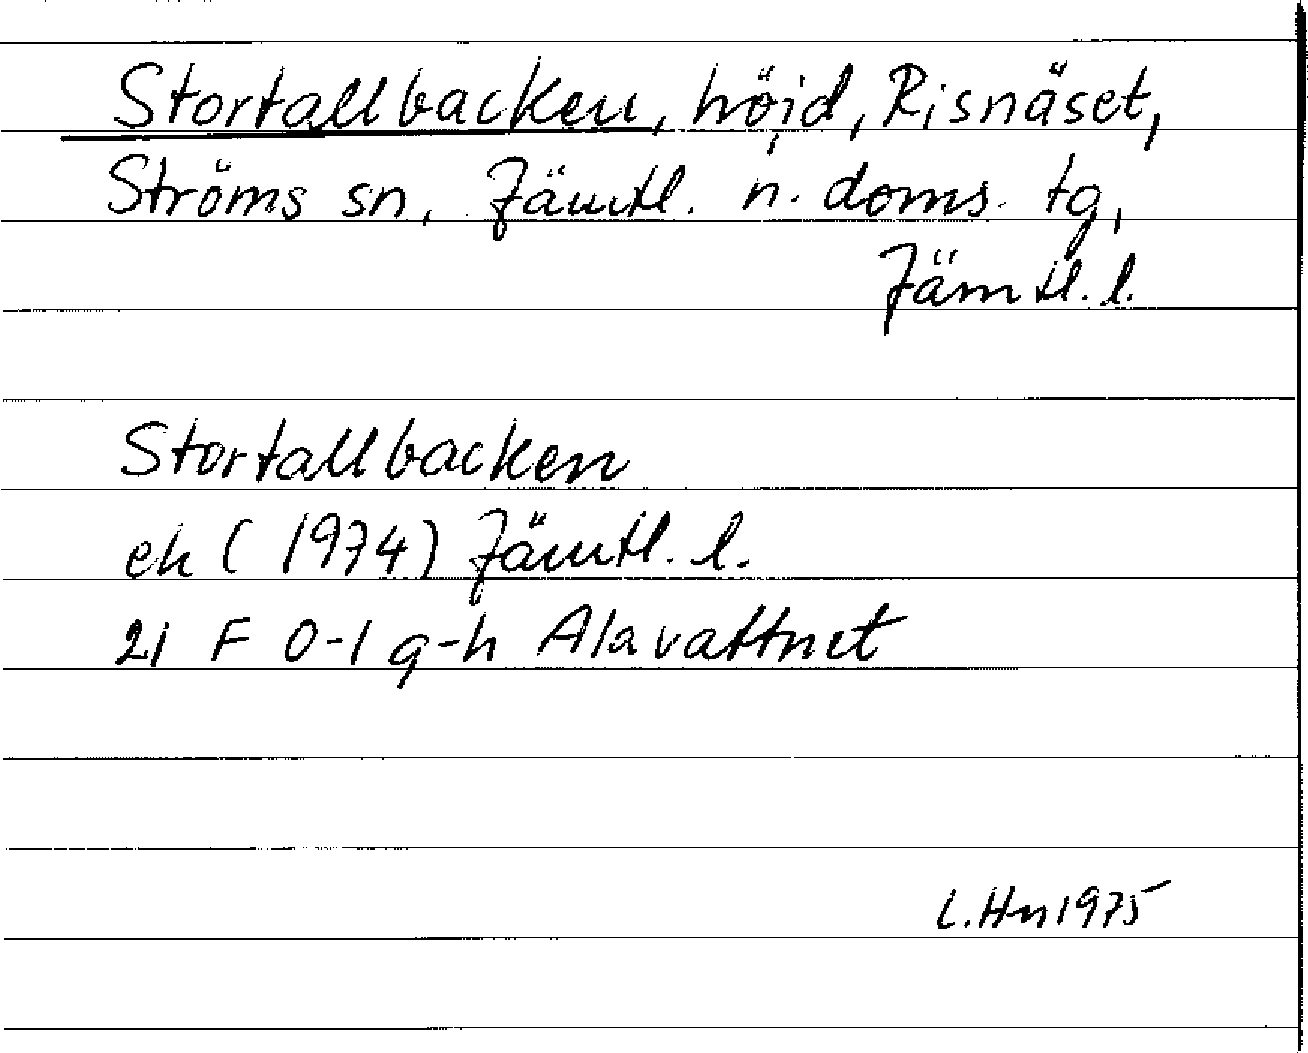 Stortallbacken, höjd, Risnäset,
Ströms sn, Jämtl. n. doms. tg,
Jämtl. l.
Stortallbacken
ek (1974) Jämtl. l.
21 F 0-1 g-h Alavattnet
L. Hn 1975